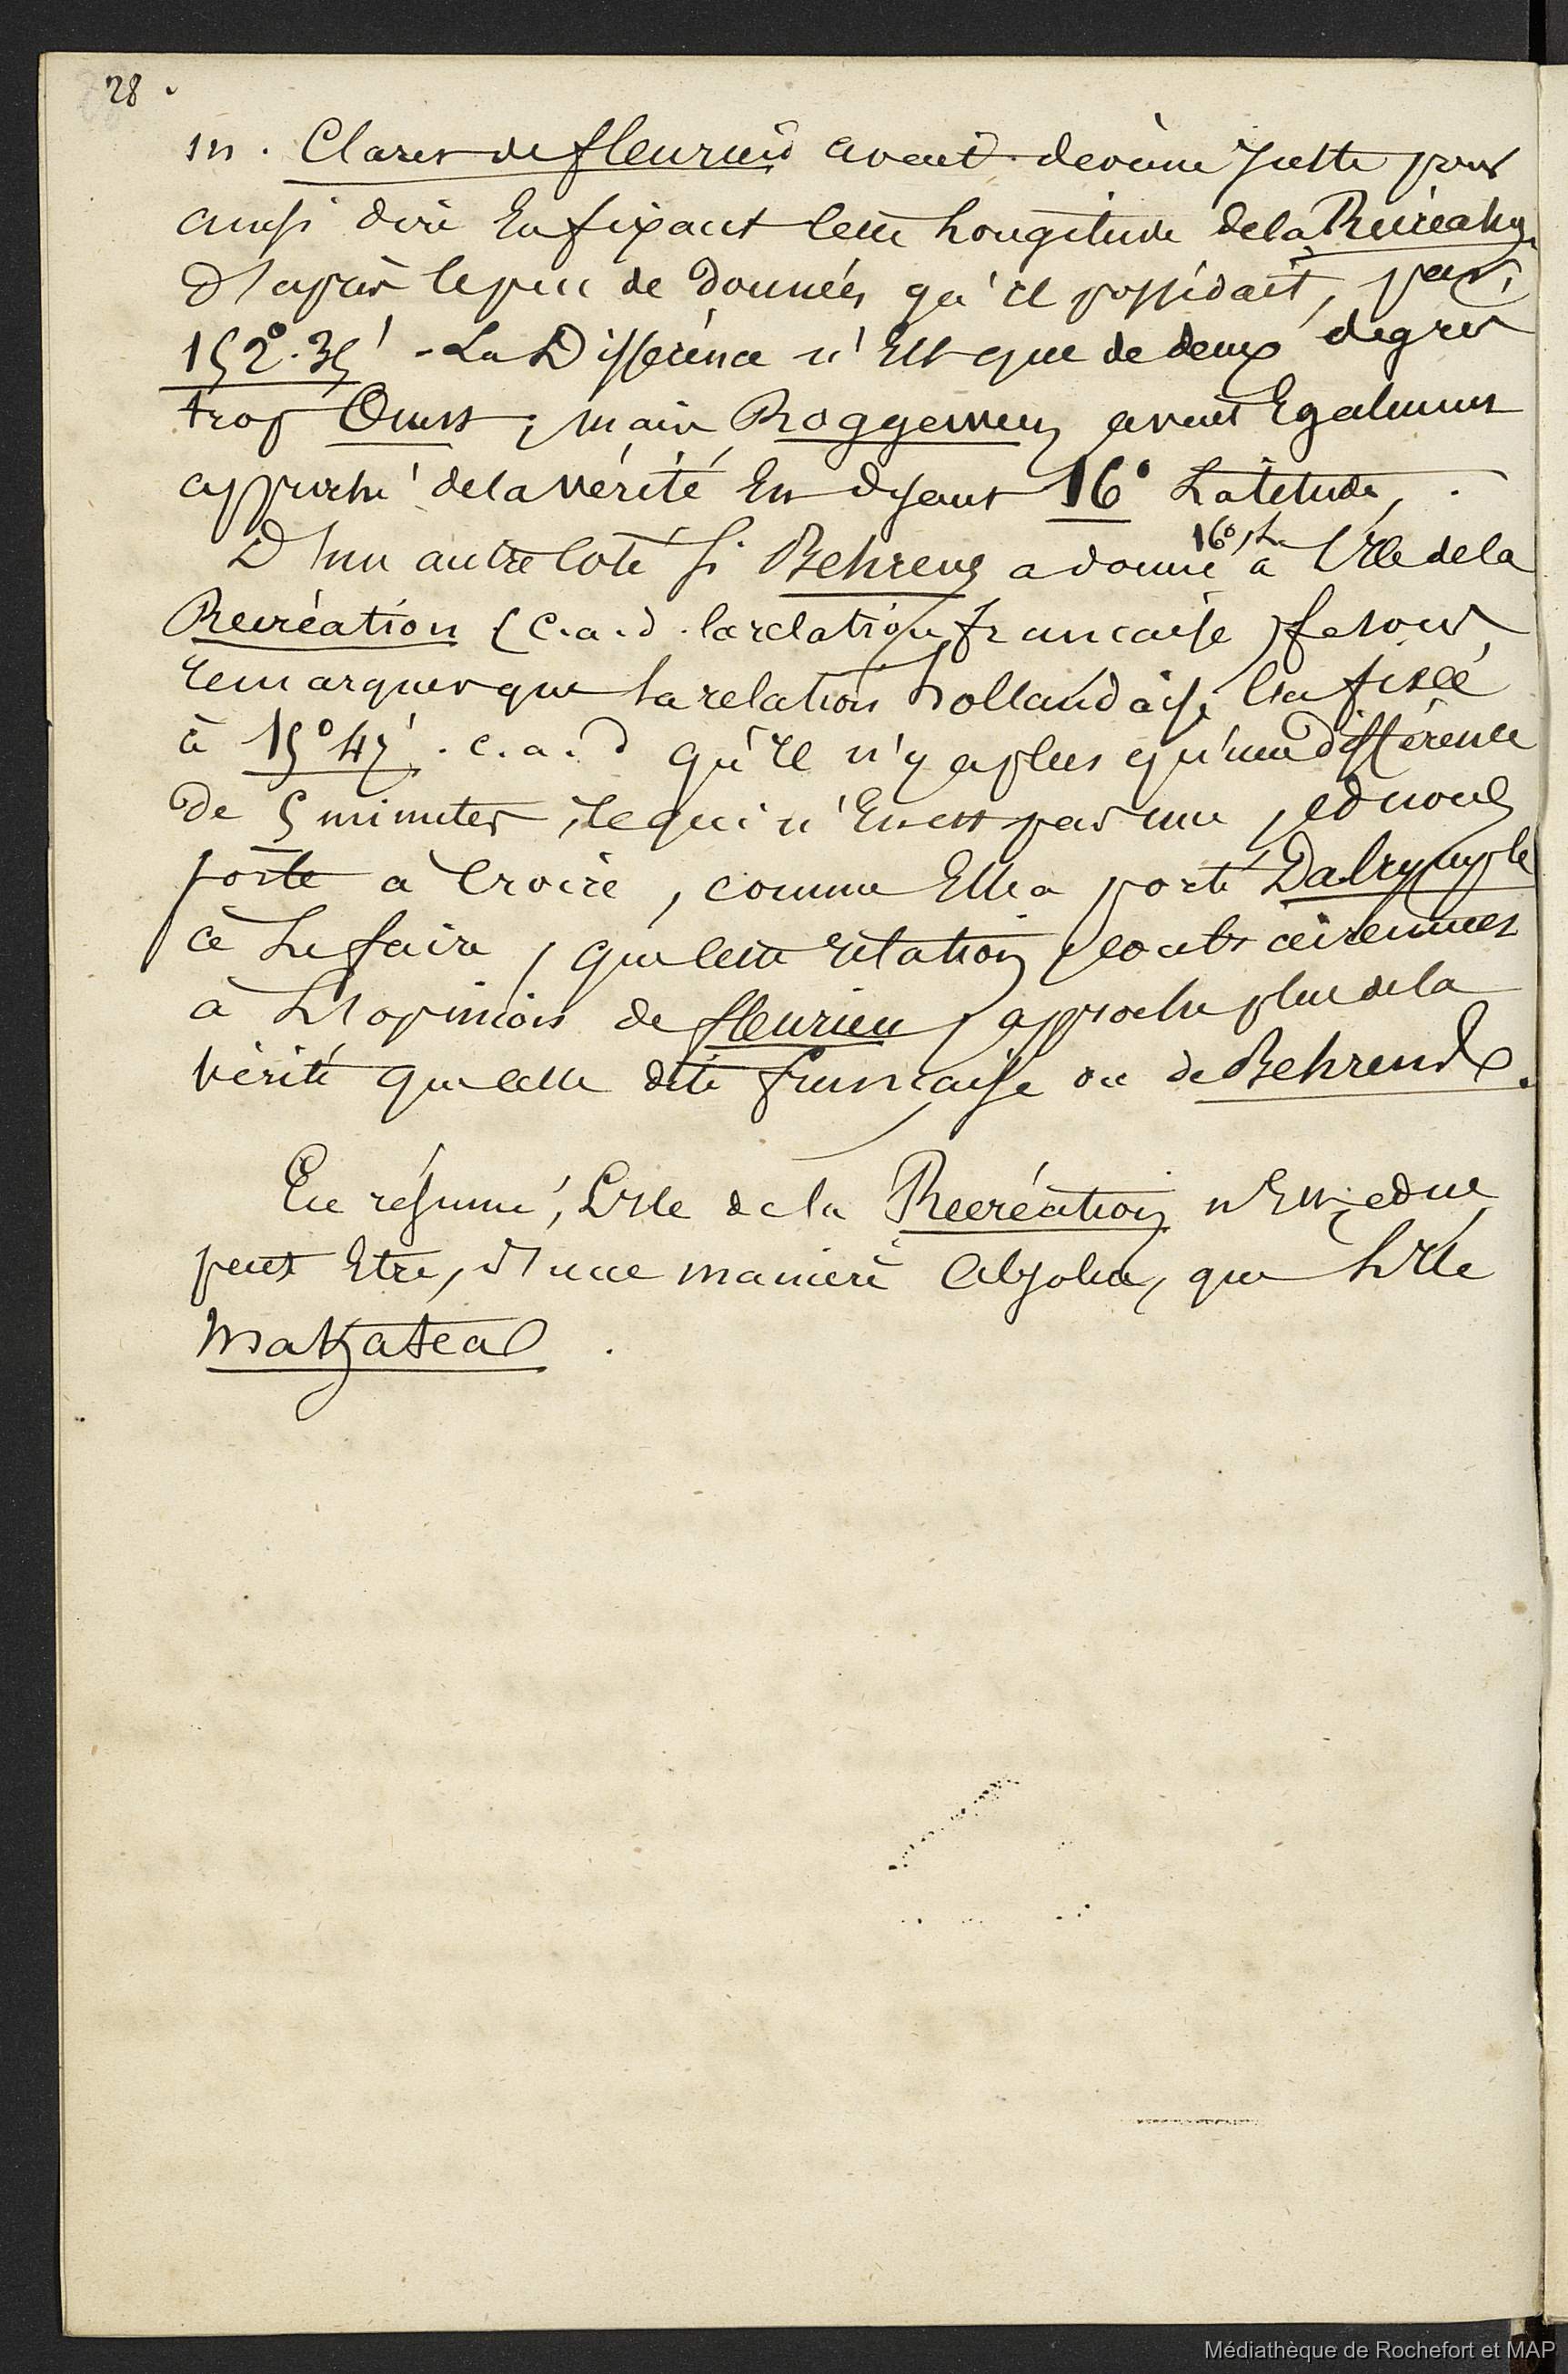 28.
M. Claret de fleurieu avait deviné juste pour
ainsi dire En fixant cette Longitude de la Récréation
d'après le peu de données qu'il possédait, par
152°.35' - La Différence n'Est que de deux degrés
trop Ouest ; mais Roggeween avait Egalement
approché de la vérité En disant 16° Latitude, .
D'un autre coté si Behrens a donné 16°, L. à l'Ile de la
Récréation (c.a.d. la relation française) je dois
remarquer que la relation hollandaise l'a fixée
à 15°47' . c.a.d qu'Il n'y a plus qu'une différence
de 5 minutes, ce qui n'En est pas une, et nous
porte à croire, comme Elle a porté Dalrymple
à Le faire, que cette relation, contrairement
à L'opinion de fleurieu, approche plus de la
vérité que celle dite française ou de Behrens.
En résumé, L'Ile de la Récréation n'Est, et ne
peut Etre, d'une manière absolue, que L'Ile
Makatea .
Médiathèque de Rochefort et MAP